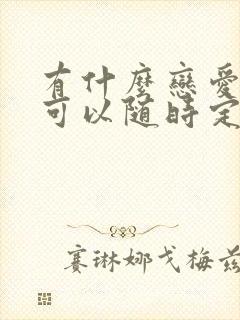 有什麼戀愛
可以隨時定
賽琳娜戈梅茲